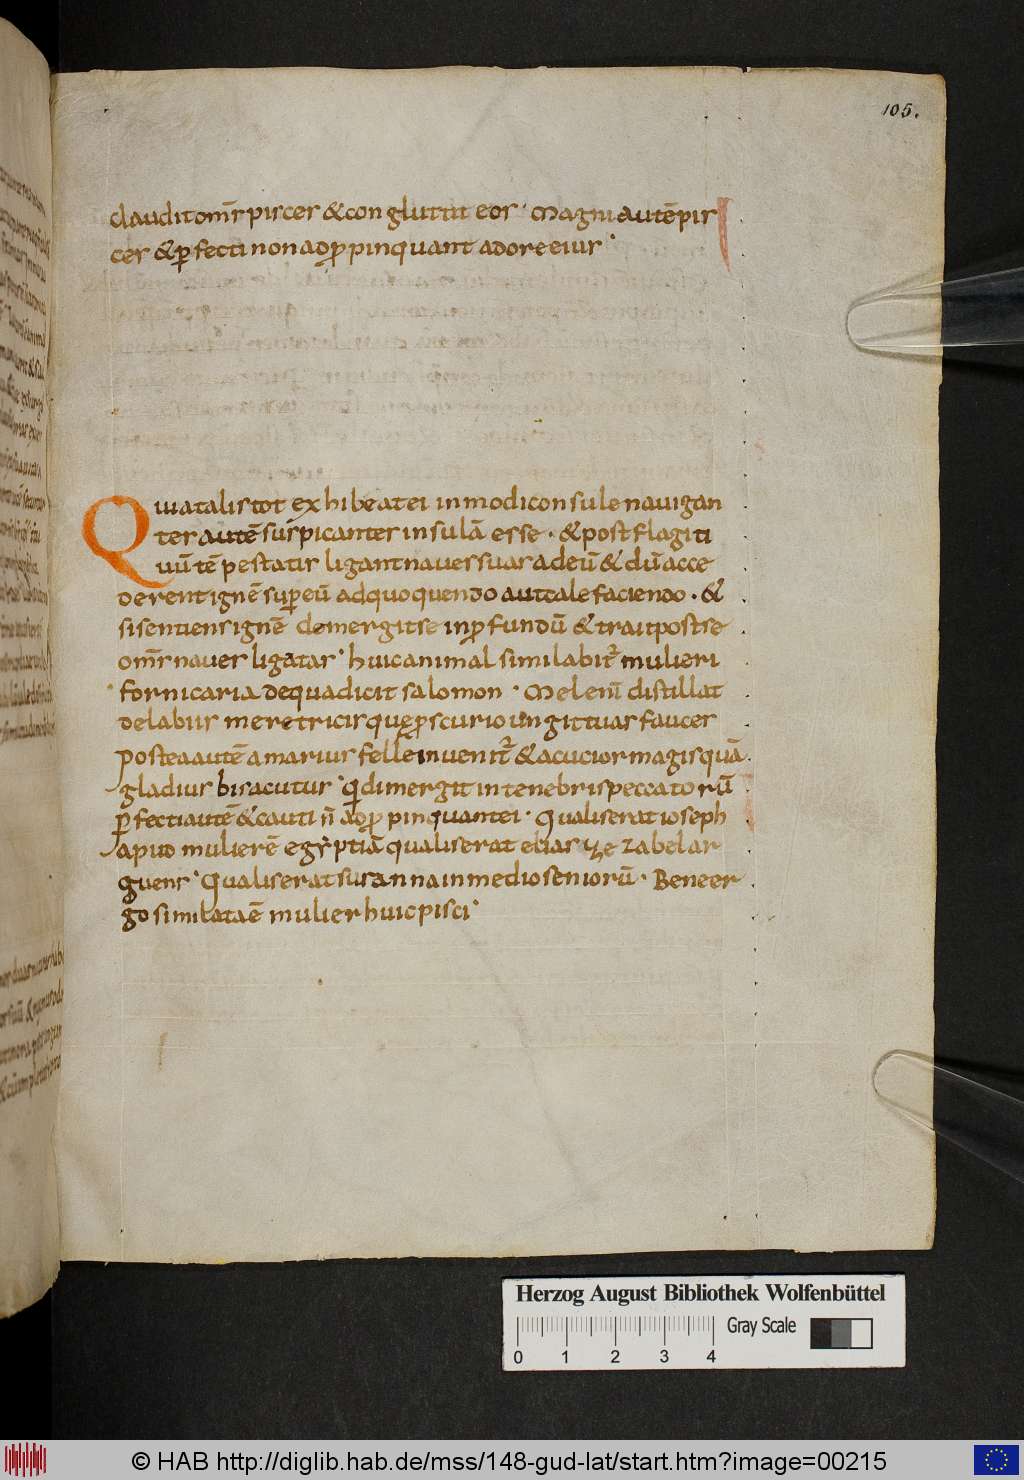 105.
claudit om̅s pisces & con gluttit eos · Magni autē pis
ces & ꝑfecti non adꝓpinquant ad ore eius ·
Qui a talis tot ex hibeat ei in modi con sule nauigan
ter autē suspicanter in sulā esse · & post flagiti
uū tē pestatis ligant naues suas ad eū & dū acce
derent ignē suꝑ eū ad quo quendo aut cale faciendo · &
si sentiens ignē demergit se in ꝓfundū & trait post se
om̅s naues ligatas · huic animal similabit̃ mulieri
fornicaria de qua dicit salomon · Mel enī distillat
de labiis meretricis quę ꝓscurio ungit tuas fauces
postea autē amarius felle inuenit̃ & acucior magis quā
gladius bis acutus · qđ dimergit in tenebris peccatorū
ꝑfecti autē & cauti n̄ adꝓ pinquant ei · Qualis erat ioseph
apud mulierē egyptiā qualis erat elias zezabel ar
guens · Qualis erat susanna in medio seniorū · Bene er
go similata ē mulier huic pisci ·
Herzog August Bibliothek Wolfenbüttel
Gray Scale
0 1 2 3 4
© HAB http://diglib.hab.de/mss/148-gud-lat/start.htm?image=00215